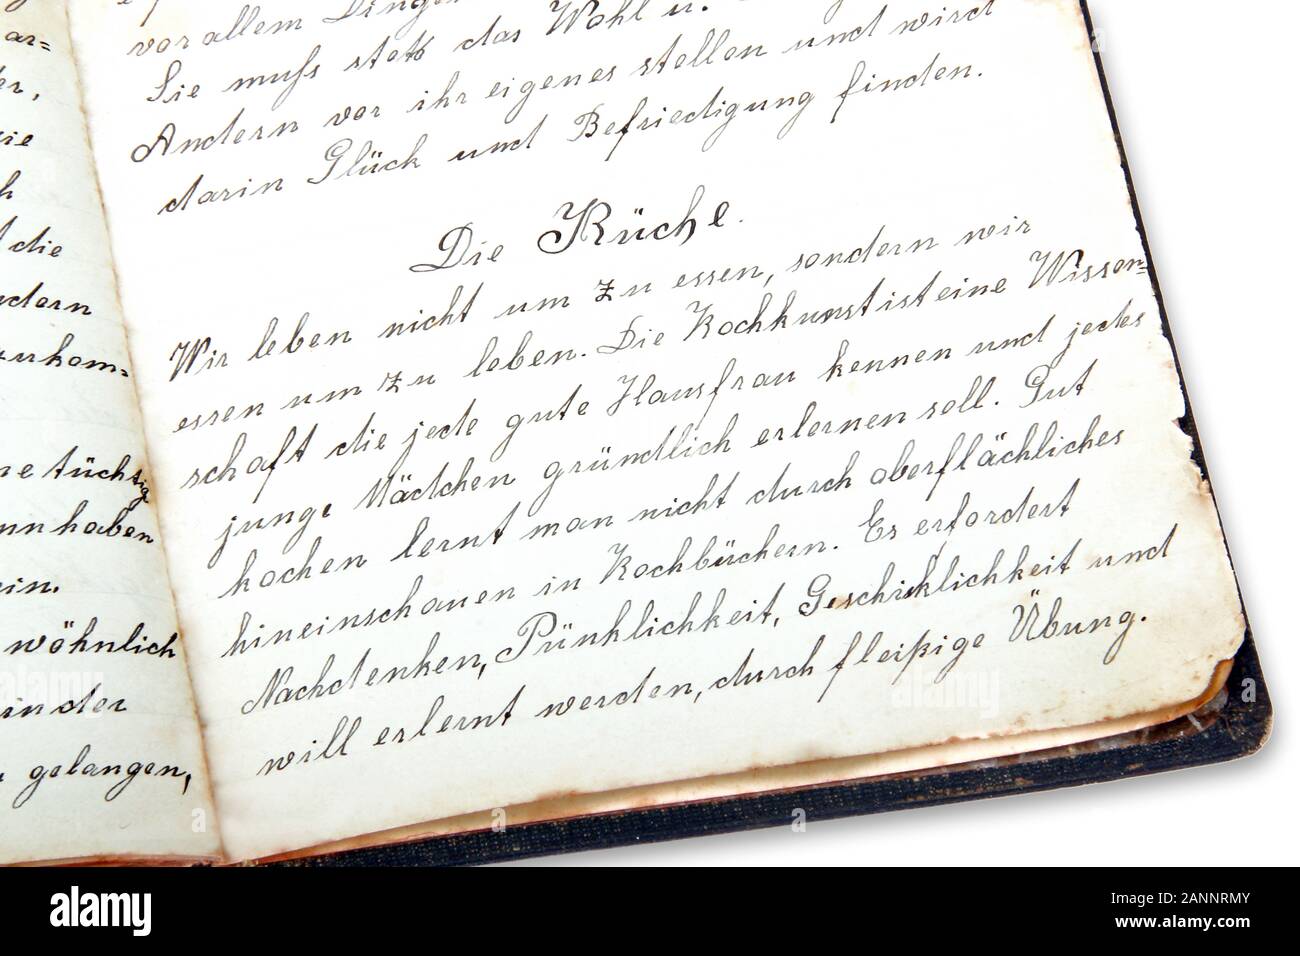 ar=
er,
sie
h
die
ndern
zukom=
ne tüchtig
ann haben
ein.
wöhnlich
inder
gelangen,
vor allem Dingen
Sie muſs stets das Wohl u.
Andern vor ihr eigenes stellen und wird
darin Glück und Befriedigung finden.
Die Küche.
Wir leben nicht um zu essen, sondern wir
essen um zu leben. Die Kochkunst ist eine Wissen=
schaft die jede gute Hausfrau kennen und jedes
junge Mädchen gründlich erlernen soll. Gut
kochen lernt man nicht durch oberflächliches
hineinschauen in Kochbüchern. Es erfordert
Nachdenken, Pünklichkeit, Geschicklichkeit und
will erlernt werden, durch fleißige Übung.
alamy
alamy
a
a
a
a
alamy
Image ID: 2ANNRMY
www.alamy.com